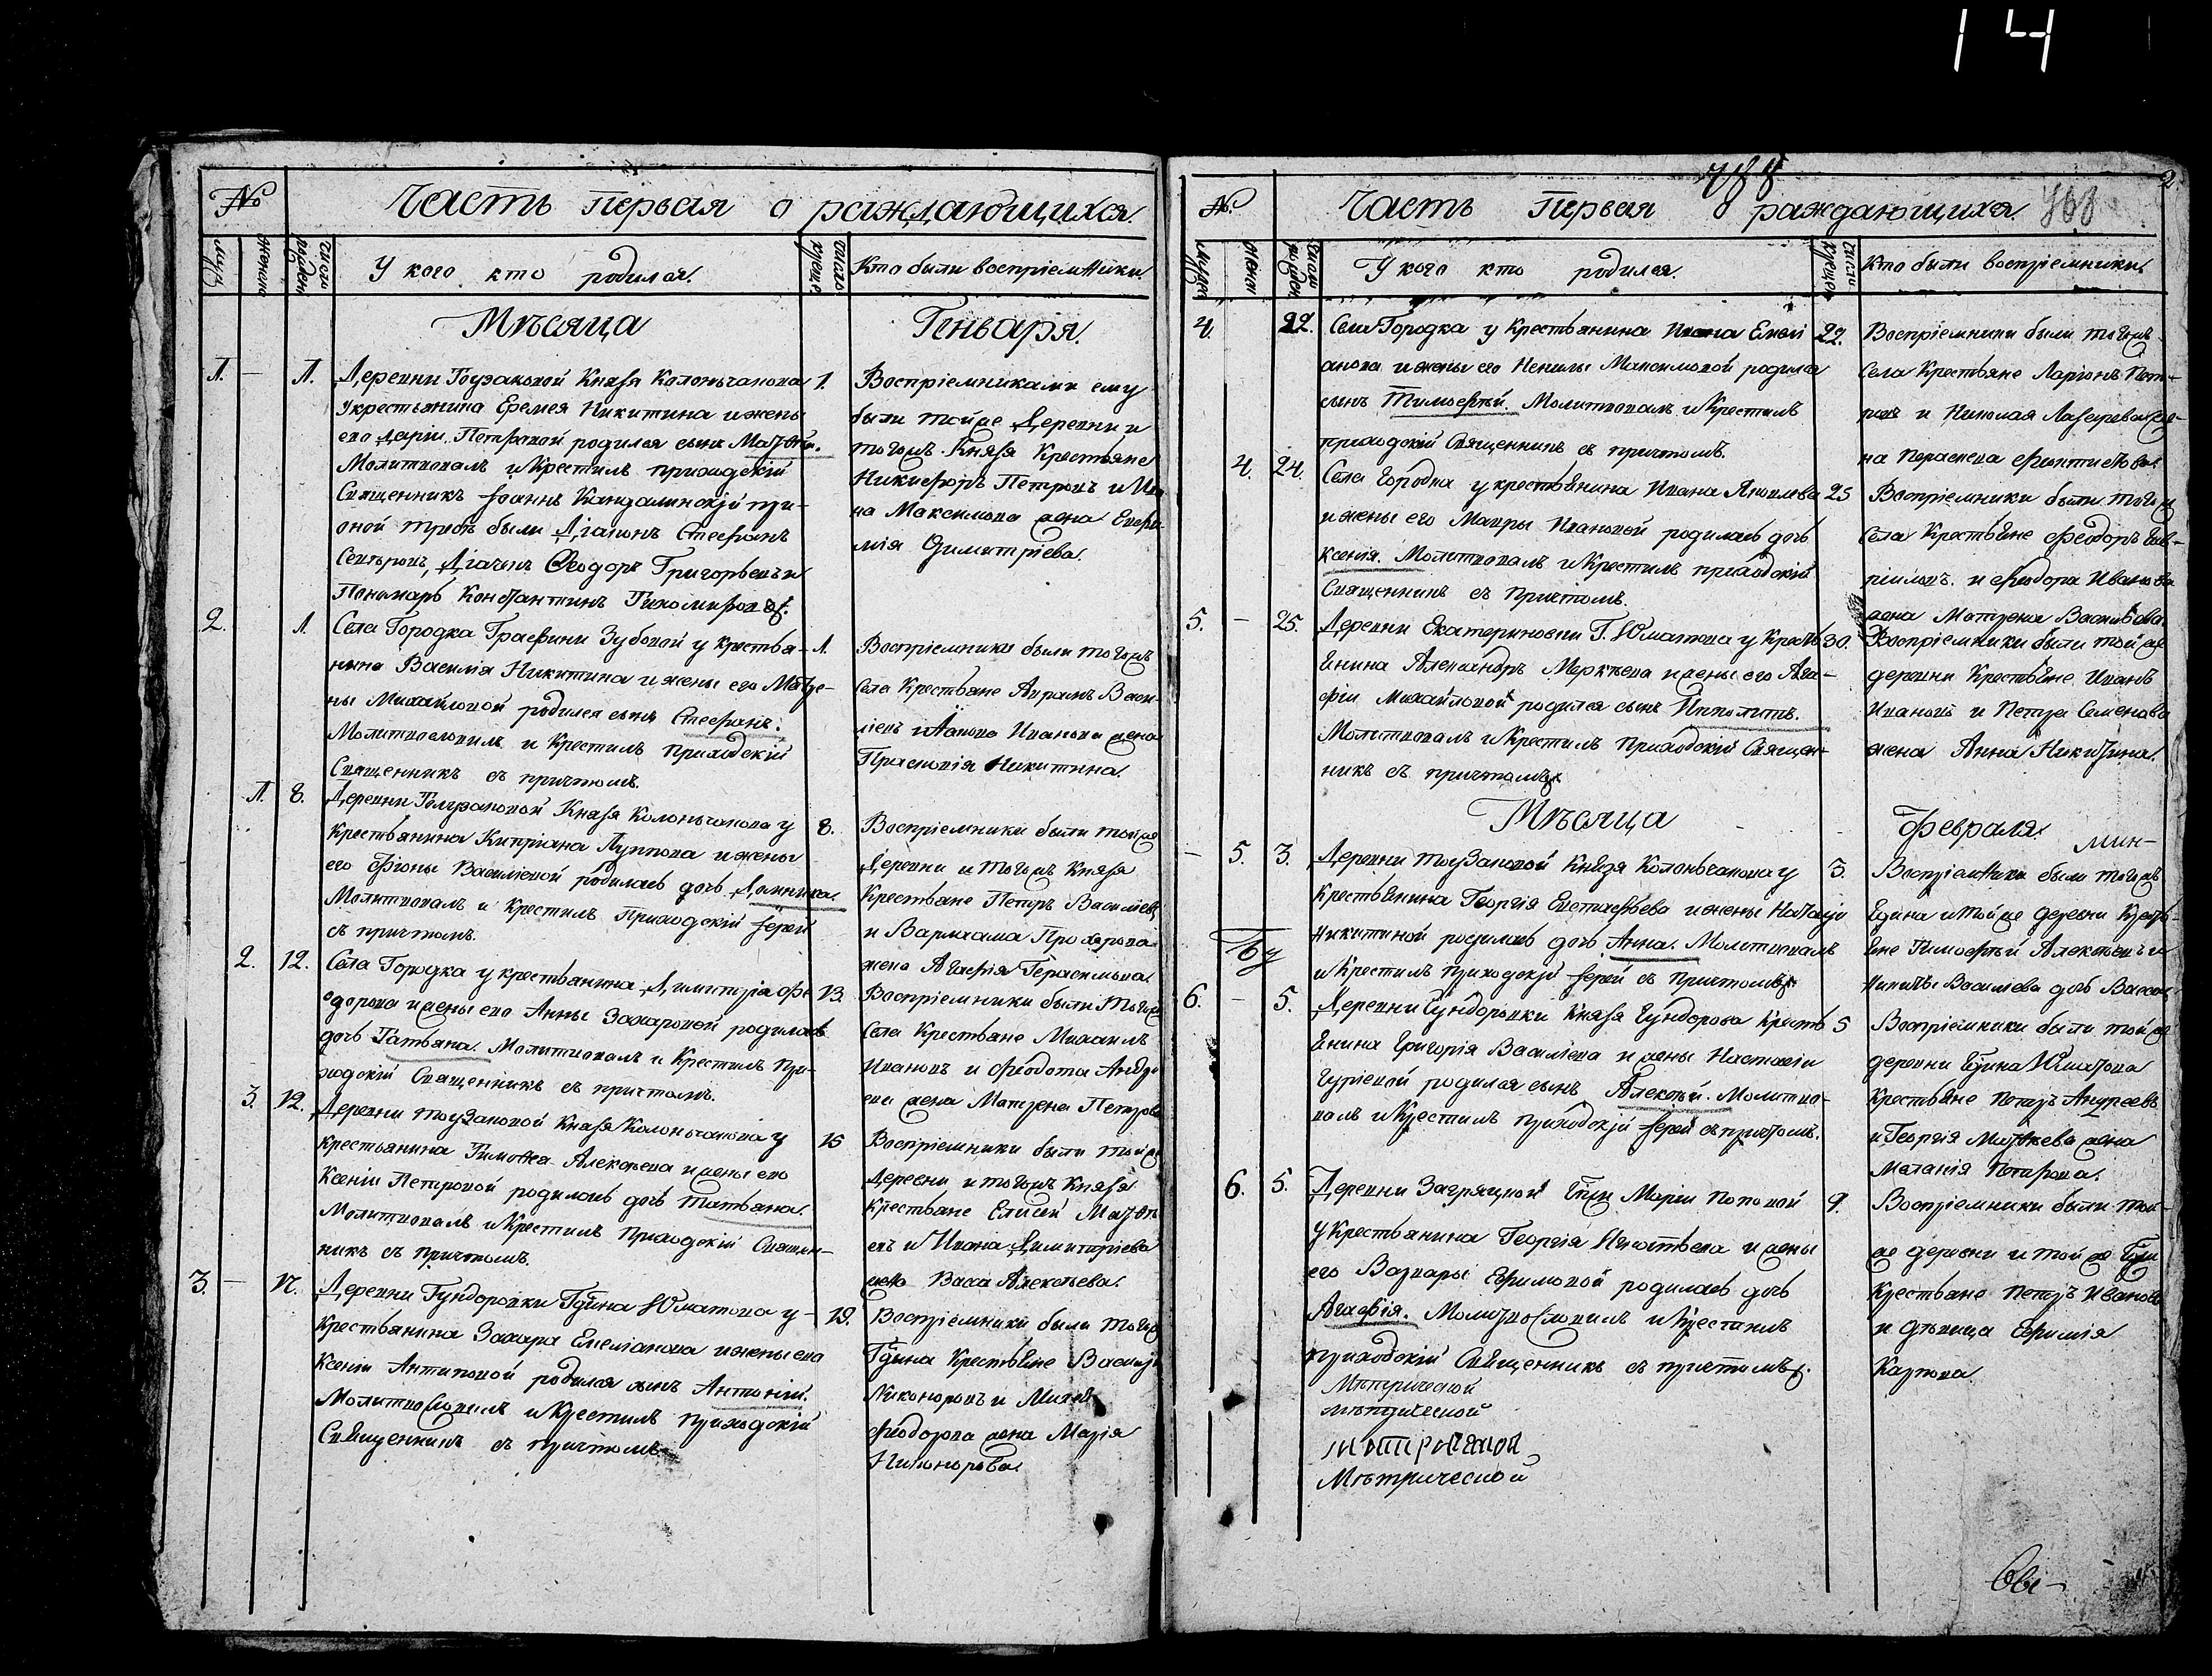 14
№
Часть первая о раждающихся
У кого кто родился.
Кто были воспріемники.
Мѣсяца
Генваря.
1.
1.
Деревни Князя Колончакова
у крестьянина Еремея Никитина и жены
его Дарьи Петровой родился сынъ Матвѣй.
Молитвовалъ и Крестилъ приходскій
Священникъ Іоаннъ Кандалинскій при
оной требѣ были Діаконъ Стефанъ
Діячекъ Ѳеодоръ Григорьевъ и
Пономарь Константинъ Тихомировъ.
1.
Воспріемниками ему
были тойже Деревни и
тогожъ Князя Крестьяне
Никифоръ Петровъ и Ива
на Максимова жена Евфи
мія Димитріева.
2.
1.
Села Городка Графини Зубовой у крестья-
нина Василія Никитина и жены его Матре-
ны Михайловой родился сынъ Стефанъ.
Молитвословилъ и Крестилъ Приходскій
Священникъ съ причтомъ.
1.
Воспріемники были тогожъ
Села Крестьяне Авраамъ Васи-
ліевъ и Иванова жена
Прасковія Никитина.
1.
8.
Деревни Князя Колончакова у
Крестьянина Кипріана Луппова и жены
его Фіоны Василіевой родилась дочь Домника.
Молитвовалъ и Крестилъ Приходскій Іерей
съ причтомъ.
8.
Воспріемники были тойже
Деревни и тогожъ Князя
Крестьяне Петръ Василіевъ
и Варлаама Прохорова
жена Агафія Герасимова
2.
12.
Села Городка у крестьянина Димитрія Фе
одорова и жены его Анны Захаровой родилась
дочь Татьяна. Молитвовалъ и Крестилъ При-
ходскій Священникъ съ причтомъ.
13.
Воспріемники были тогожъ
Села Крестьяне Михаилъ
Ивановъ и Феодота Андре
ева жена Матрена Петрова
3.
12.
Деревни Князя Колончакова у
крестьянина Тимофея Алексѣева и жены его
Ксеніи Петровой родилась дочь Татьяна.
Молитвовалъ и Крестилъ Приходскій Священ-
никъ съ причтомъ.
15
Воспріемники были тойже
Деревни и тогожъ Князя
Крестьяне Елисей Матвѣ
евъ и Ивана Димитріева
жена Васса Алексѣева.
3.
17.
Деревни Гундоровки Гдина Юматова у
Крестьянина Захара Емеліанова и жены его
Ксеніи Антиповой родился сынъ Антоній.
Молитвословилъ и Крестилъ приходскій
Священникъ съ причтомъ
19.
Воспріемники были тогожъ
Гдина Крестьяне Василій
Никоноровъ и
Феодорова жена Марія
Никонорова.
788
2
№.
Часть Первая о раждающихся.
У кого кто родился.
Кто были воспріемники
4.
22.
Села Городка у Крестьянина Ивана Емелі
анова и жены его Ненилы Максимовой родился
сынъ Тимофей. Молитвовалъ и Крестилъ
приходскій Священникъ съ причтомъ.
22.
Воспріемники были тогожъ
Села Крестьяне Ларіонъ Пет-
ровъ и Николая Лазарева же-
на Параскева
4.
24.
Села Городка у крестьянина Ивана Яковлева
и жены его Мавры Ивановой родилась дочь
Ксенія. Молитвовалъ и Крестилъ приходскій
Священникъ съ Причтомъ.
25
Воспріемники были тогожъ
Села Крестьяне Феодоръ Гав-
ріиловъ и Феодора Иванова
жена Матрена Василіева.
5.
25.
Деревни Екатериновки Г. Юматова у Кресть
янина Александръ Маркѣева и жены его Ага-
фіи Михайловой родился сынъ Ипполитъ.
Молитвовалъ и Крестилъ Приходскій Священ-
никъ съ причтомъ
30.
Воспріемники были тойже
деревни Крестьяне Иванъ
Ивановъ и Петра Семенова
жена Анна Никитина.
Мѣсяца
Февраля
5.
3.
Деревни Князя Колончакова у
Крестьянина Георгія Евстафьева и жены Наталіи
Никитиной родилась дочь Анна. Молитвовалъ
и Крестилъ приходскій Іерей съ Причтомъ
3.
Воспріемники были тогожъ
Гдина и тойже деревни Кресть-
яне Тимофей Алексѣевъ и
Никиты Василева дочь Васса
6.
5.
Деревни Гундоровки Князя Гундорова Кресть
янина Григорія Василіева и жены Настасіи
Гуріевой родился сынъ Алексѣй. Молитво-
валъ и Крестилъ приходскій Іерей съ причтомъ.
5
Воспріемники были тойже
деревни Гдина Юматова
Крестьяне Петръ Андреевъ
и Георгія Матвѣева жена
Маланія Петрова.
6.
5.
Деревни Загрядной Гжи Маріи Поповой
у Крестьянина Георгія Игнатьева и жены
его Варвары Ефимовой родилась дочь
Агафія. Молитвословилъ и Крестилъ
приходскій Священникъ съ причтомъ.
9.
Воспріемники были той-
же деревни и тойже Гжи
Крестьяне Петръ Ивановъ
и дѣвица Ефимія
Карпова
Мѣтрической
мѣтрической
Мѣтрической